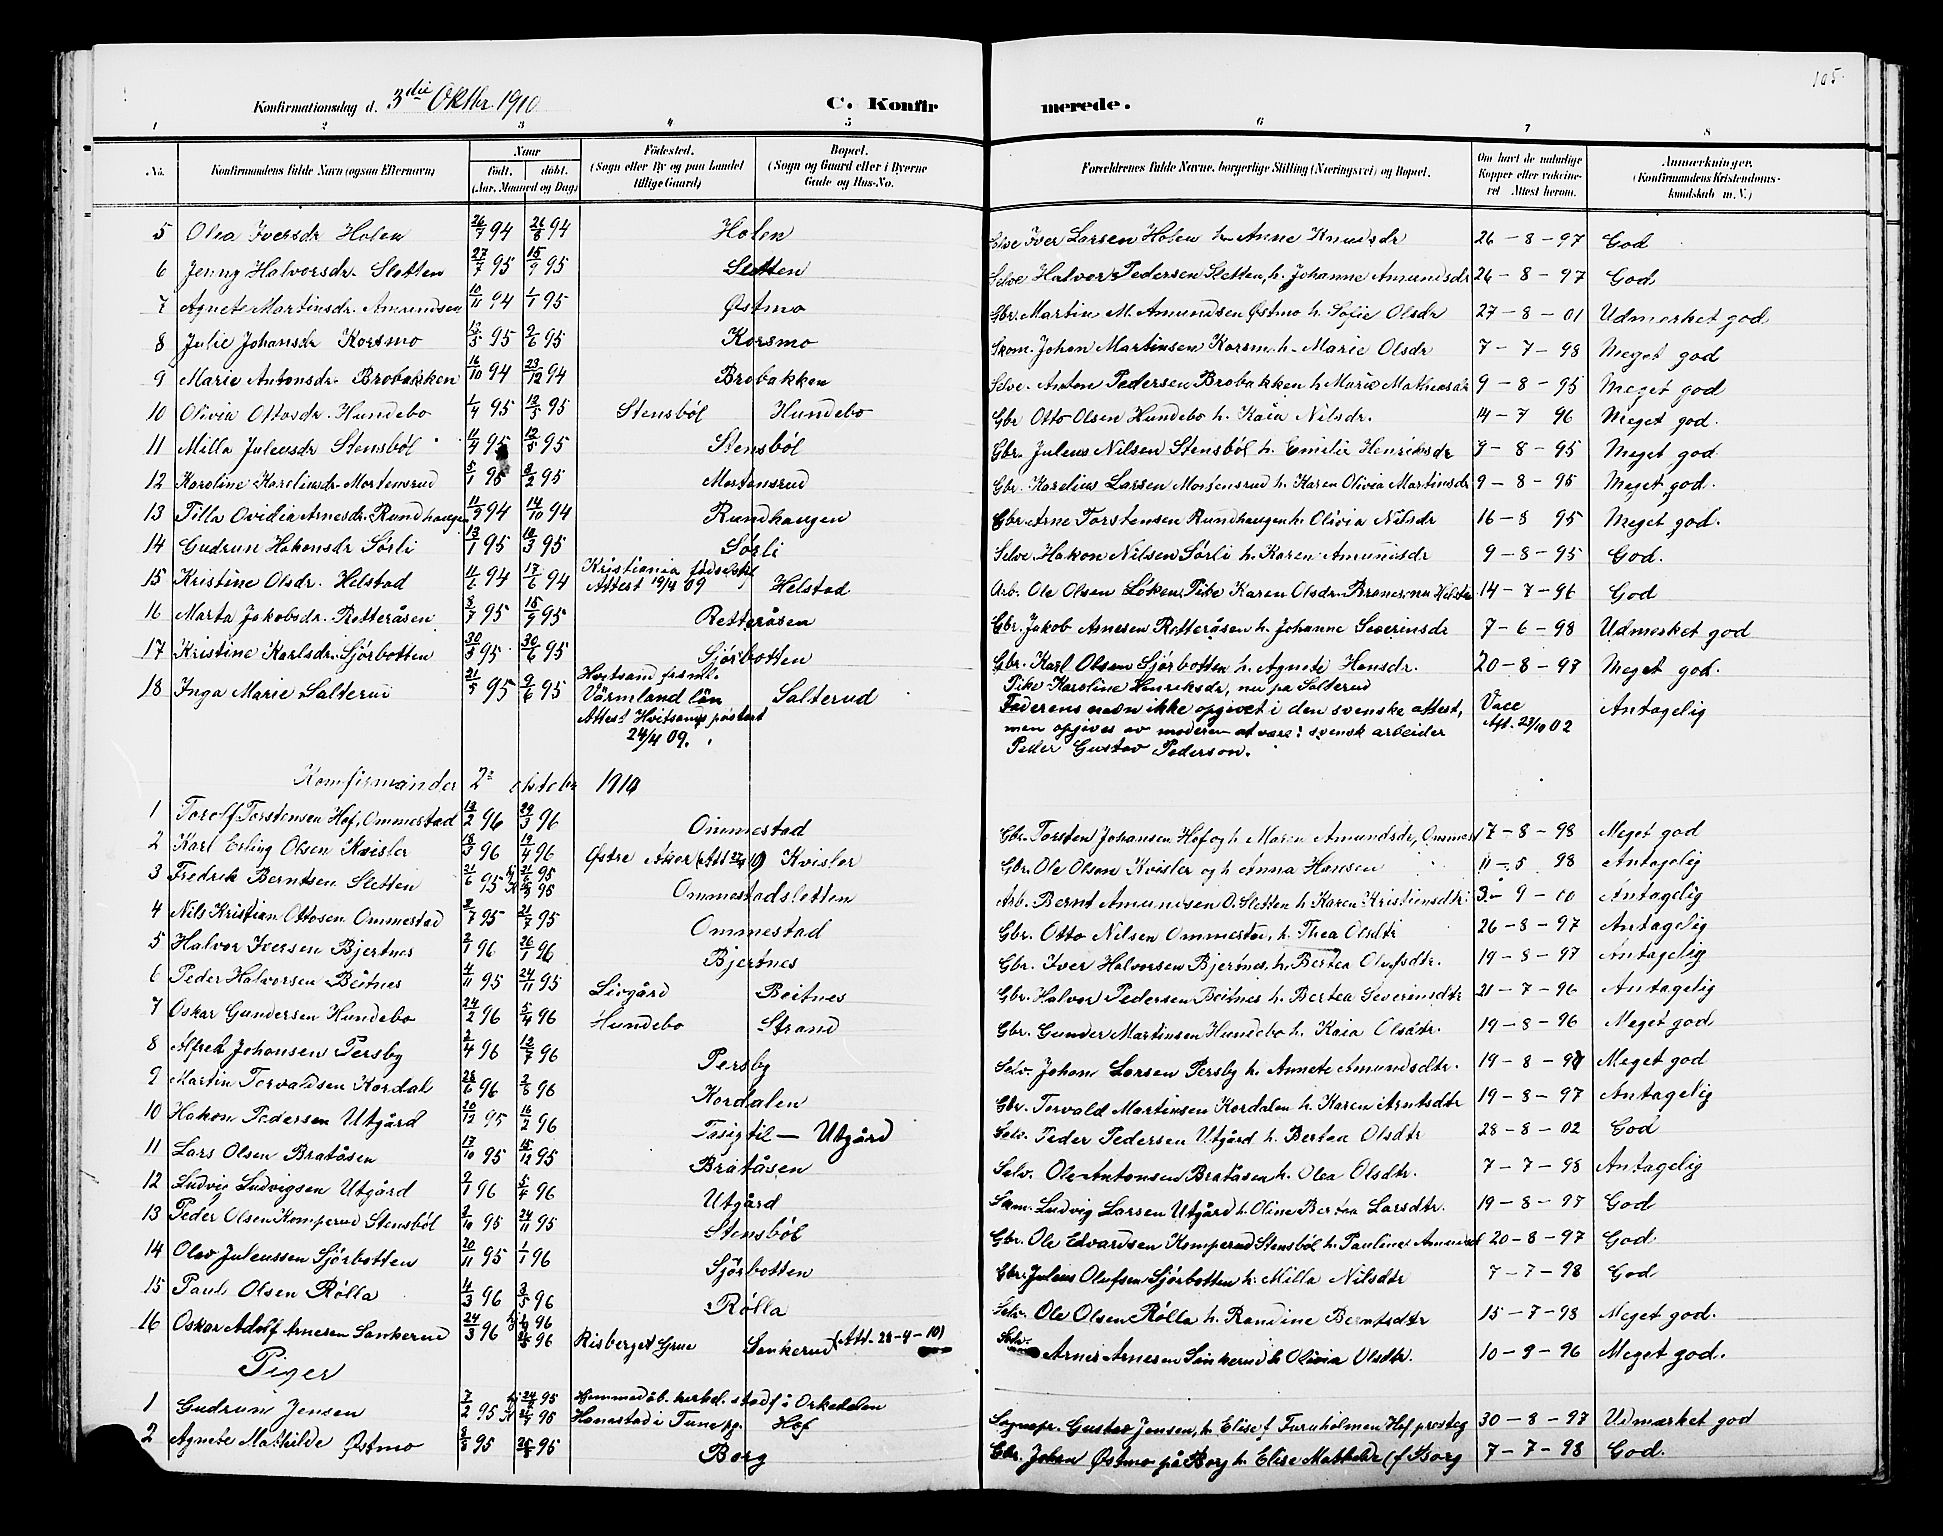 105.
Konfirmationsdag d. 3die Oktbr. 1910
C. Konfirmerede.
1 2 3 4 5 6 7 8
No. Konfirmandens fulde Navn (ogsaa Efternavn) Naar født. døbt. (Aar, Maaned og Dag) Fødested. (Sogn eller By og paa Landet tillige Gaard) Bopæl. (Sogn og Gaard eller i Byerne Gade og Hus-No. Forældrenes fulde Navne, borgerlige Stilling (Næringsvei) og Bopæl. Om havt de naturlige Kopper eller vaccineret Attest herom. Anmærkninger. (Konfirmandens Kristendomskundskab m. V.)
5 Olea Iversdr Holen 26/7 94 26/8 94 Holen Selve Iver Larsen Holen h. Anne Knudsdr 26-8-97 God
6 Jenny Halvorsdr. Sletten 27/7 95 15/9 95 Sletten Selve Halvor Pedersen Sletten, h. Johanne Amundsdr 26-8-97 God
7 Agnete Martinsdr. Amundsen 10/11 94 1/1 95 Østmo Gbr. Martin M. Amundsen Østmo h. Sofie Olsdr 27-8-01 Udmerket god
8 Julie Johansdr Korsmo 95 2/6 95 Korsmo Skom. Johan Martinsen Korsm. h. Marie Olsdr 7-7-98 Meget god
9 Marie Antonsdr. Brobakken 16/10 94 23/12 94 Brobakken Selve. Anton Pedersen Brobakken h. Marie Mathiasdr 9-8-95 Meget god
10 Olivia Ottosdr. Hundebo 1/4 95 12/5 95 Stensböl Hundebo Gbr Otto Olsen Hundebo h. Kaia Nilsdr. 14-7 96 Meget god.
11 Milla Juleusdr Stensböl 11/4 95 12/5 95 Stensböl Gbr. Juleus Nilsen Stensböl h. Emilie Henriksdr 9-8-95 Meget god
12 Karoline Kareliusdr. Mortensrud 5/1 95 2/2 95 Mortensrud Gbr. Karelius Larsen Mortensrud h. Karen Olivia Martinsdr 9-8-95 Meget god.
13 Tilla Ovidia Arnesdr. Rundhaugen 94 14/10 94 Rundhaugen Gbr. Arne Torstensen Rundhaugen h. Olivia Nilsdr 16-8 95 Meget god.
14 Gudrun Hakonsdr Sörli 13/1 95 10/3 95 Sörli Selve Hakon Nilsen Sörli h. Karen Amundsdr 9-8-95 God.
15 Kristine Olsdr. Helstad 11/6 94 17/6 94 Kristiania fødselstif. Attest 19/4 09 Helstad Arb. Ole Olsen Löken, Pike Karen Olsdr. 14-7-96 God
16 Marta Jakobsdr. Retteråsen 8/7 95 15/9 95 Retteråsen Gbr. Jakob Arnesen Retteråsen h. Johanne Severinsdr 7-6-98 Udmerket god
17 Kristine Karlsdr. Sjörbotten 30/5 95 30/6 95 Sjörbotten Gbr. Karl Olsen Sjörbotten h. Agnete Hansdr. 20-8-97 Meget god.
18 Inga Marie Salterud 21/5 95 9/6 95 Hvitsand Värmland län Attest Hvitsands pastorat 24/4 09. Salterud Pike Karoline Henriksdr, nu på Salterud Faderens navn ikke opgivet i den svenske attest, men opgives av moderen at være: svensk arbeider Peder Gustav Pederson. Vacc Aft. 23/10 02 Antagelig
Komfirmander 2n oktober 1910
1 Torolf Torstensen Hof, Ommestad 13/2 96 29/3 96 Ommestad Gbr. Torsten Johansen Hof og h. Maren Amundsdr, Ommest 17-8-98 Meget god
2 Karl Erling Olsen Kvisler 18/3 96 19/4 96 Østre Aker Kvisler Gbr. Ole Olsen Kvisler og h. Anna Hansen 11-5 98 Antagelig
3 Fredrik Berntsen Sletten 21/6 95 95 95 Ommestadsletten Arb. Bernt Amundsen O. Sletten h. Karen Kristiansdtr: 3-9-00 Antagelig
4 Nils Kristian Ottosen Ommestad 2/7 95 21/7 95 Ommestad Gbr. Otto Nilsen Ommestad, h. Thea Olsdtr 26-8-97 Antagelig
5 Halvor Iversen Bjertnes 2/1 96 26/1 96 Bjertnes Gbr. Iver Halvorsen Bjertnes, h. Bertea Olufsdtr. 19-8-97 Antagelig
6 Peder Halvorsen Beitnes 4/11 95 24/11 95 Livgård Beitnes Gbr. Halvor Pedersen Beitnes h. Bertea Severinsdtr 21-7-96 Antagelig
7 Oskar Gundersen Hundebo 24/2 96 5/4 96 Hundebo Strand Gbr. Gunder Martinsen Hundebo h. Kaia Olsdtr. 19-8-96 Meget god
8 Alfred Johansen Persby 2/4 96 12/7 96 Persby Selv. Johan Larsen Persby h. Annete Amundsdtr. 19-8-97 Meget god
9 Martin Torvaldsen Kordal 28/6 96 96 Kordalen Gbr. Torvald Martinsen Kordalen h. Karen Arntsdtr 19-8-97 Antagelig
10 Hakon Pedersen Utgård 20/12 95 16/2 96 — Utgård Selv. Peder Pedersen Utgård h. Bertea Olsdtr 28-8-02 God
11 Lars Olsen Bratåsen 17/10 95 15/12 95 Bratåsen Selv. Ole Antonsen Bratåsen h. Olea Olsdtr. 7-7-98 Antagelig
12 Ludvig Ludvigsen Utgård 2/1 96 5/4 96 Utgård Ludvig Larsen Utgård h. Oline Bertea Larsdtr. 19-8-97 God
13 Peder Olsen Komperud Stensböl 2/10 95 24/11 95 Stensböl Gbr. Ole Edvardsen Komperud Stensböl h. Pauline 20-8-97 God
14 Olav Juleussen Sjörbotten 20/11 95 1/1 96 Sjörbotten Gbr. Juleus Olufsen Sjörbotten h. Milla Nilsdtr 7-7-98 God
15 Paul Olsen Rölla 4/3 96 3/5 96 Rölla Selv. Ole Olsen Rölla h. Randine Berntsdtr 15-7-98 Meget god.
16 Oskar Adolf Arnesen Sankerud 24/3 96 96 96 Risberget Grue Sankerud (Att. 28-4-10) Selv. Arne Arnesen Sankerud h. Olivia Olsdtr. 10-9-96 Meget god.
Piger
1 Gudrun Jensen 7/2 95 95 95 Hjemmedöb. kirkel. stadf. i Orkedalen Hannestad i Tune pg. Hof Sognepr. Gustav Jensen, h. Elise f. Furuholmen Hof presteg 30-8-97 Udmærket god
2 Agnete Mathilde Østmo 8/8 95 95 Borg Gbr. Johan Østmo på Borg h. Elise Mathilde (f. Borg 7-7-98 God.